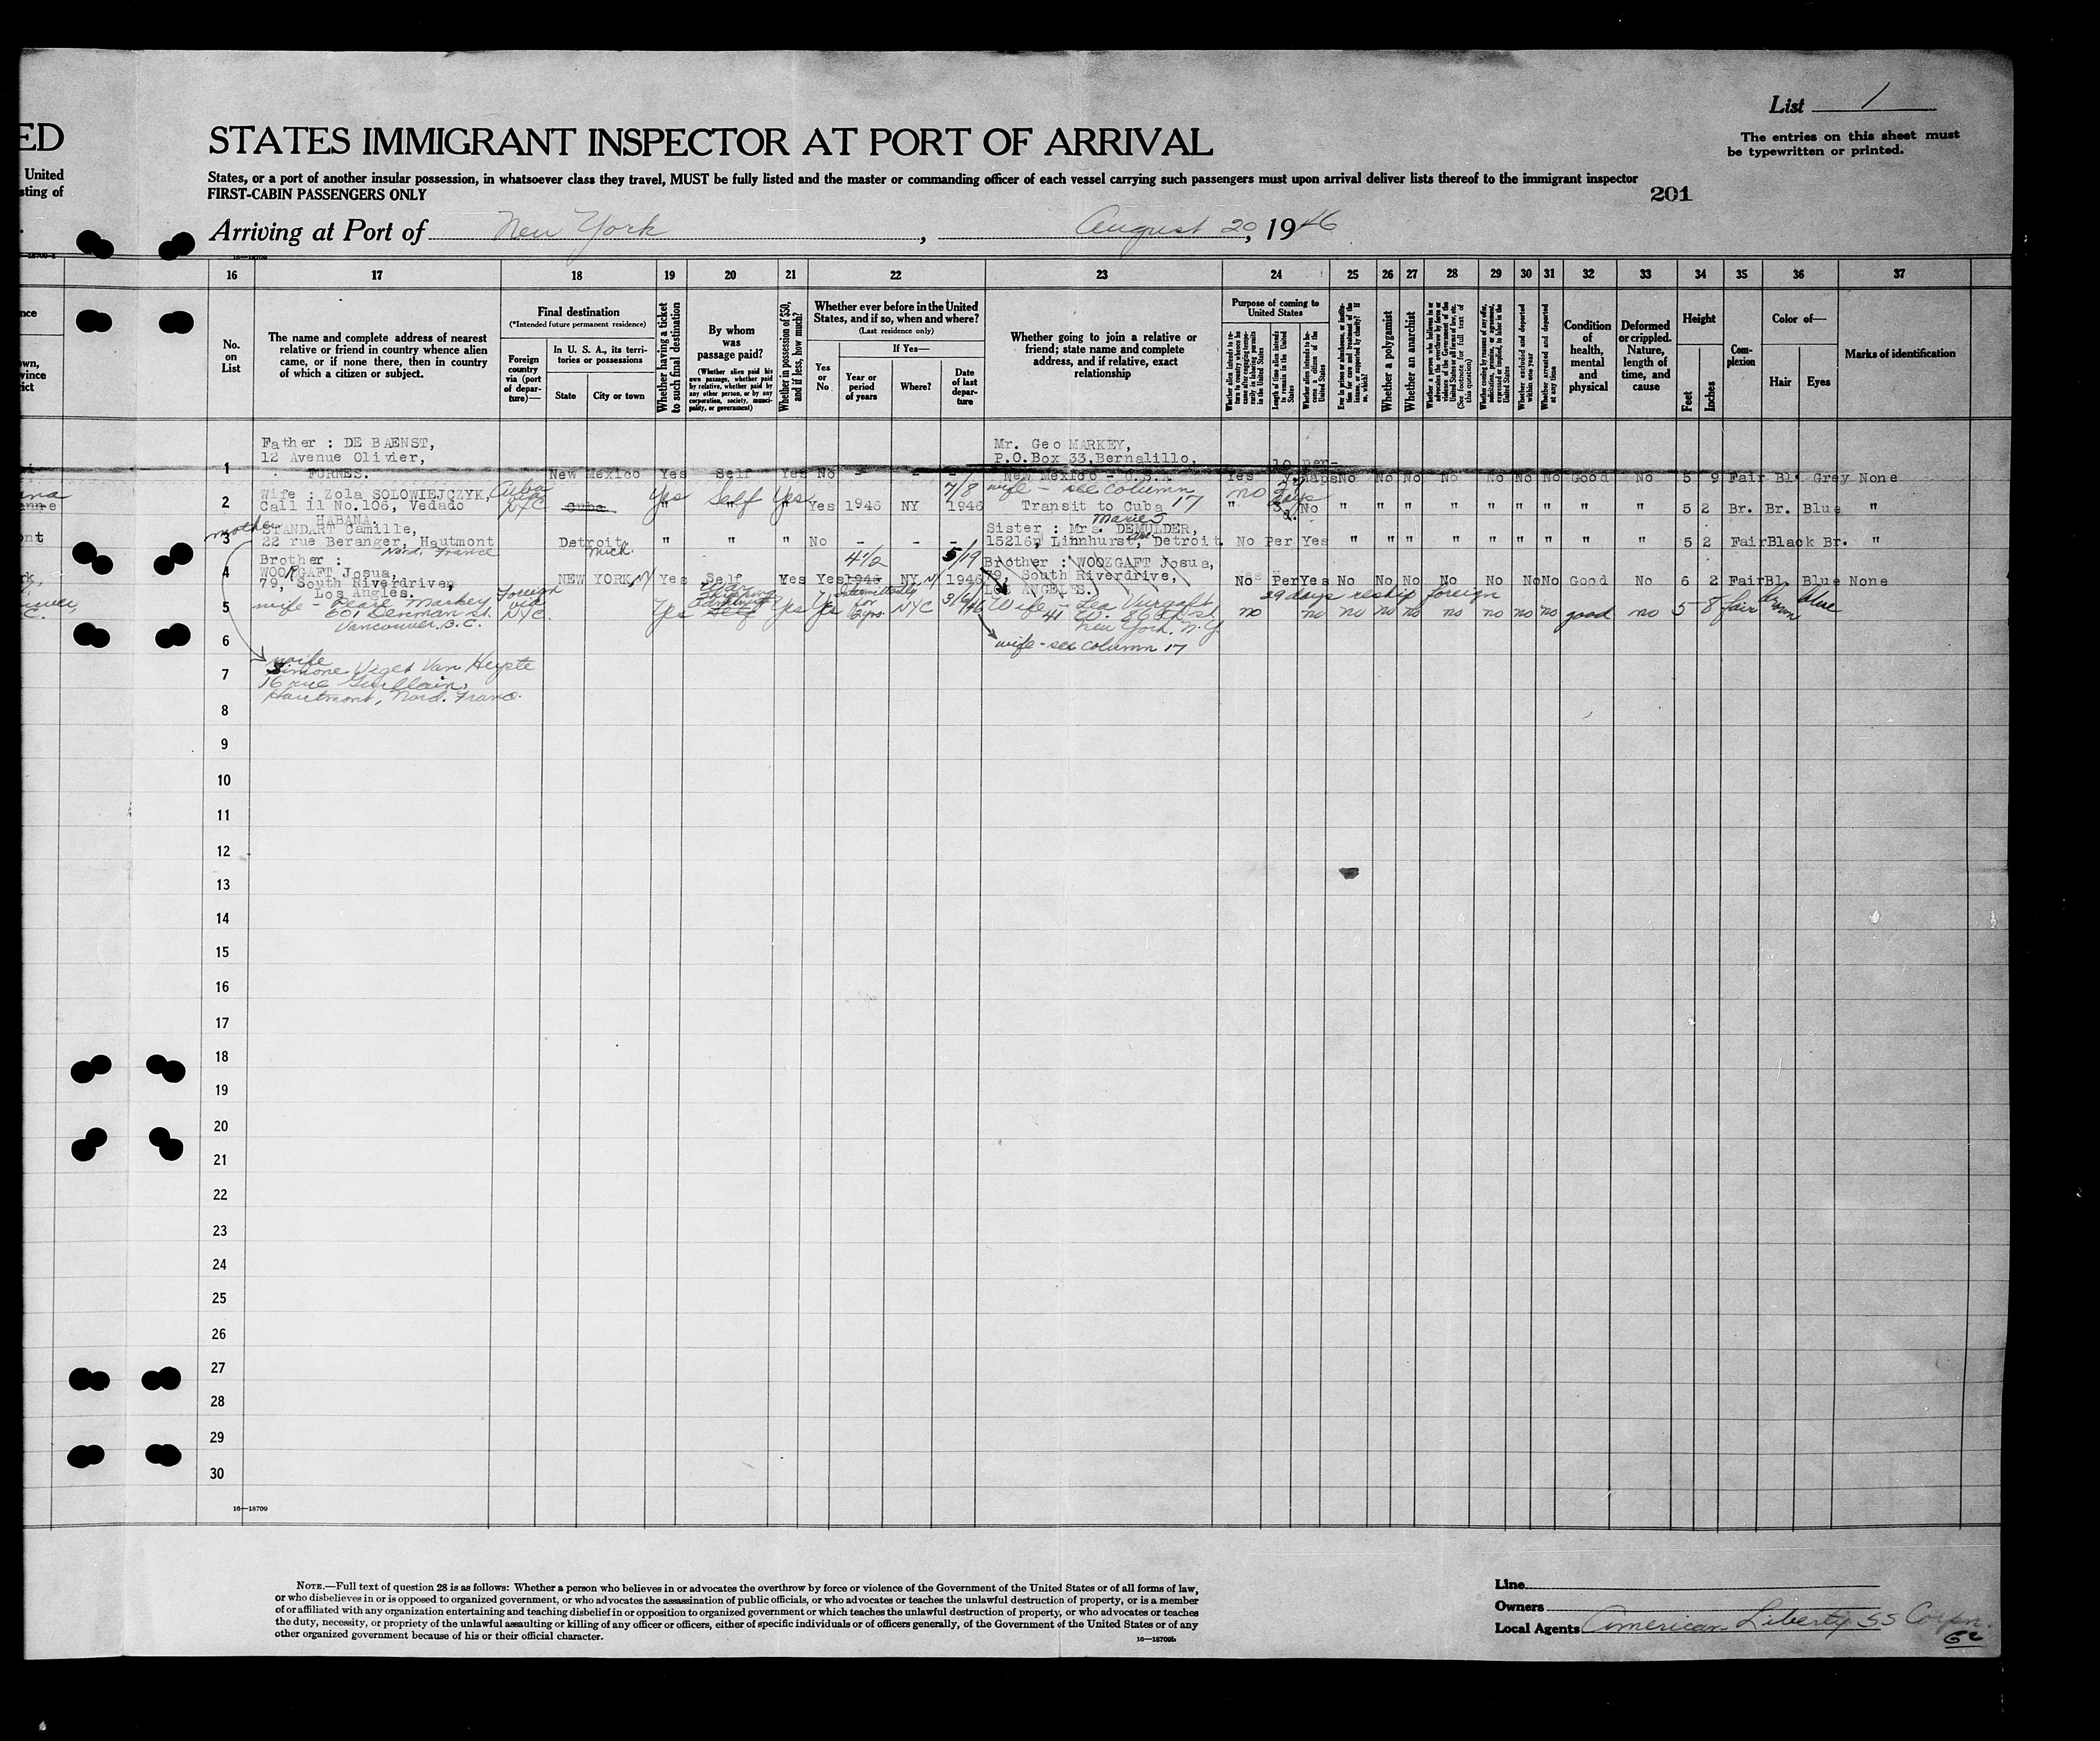 List 1
The entries on this sheet must
be typewritten or printed.
ED
STATES IMMIGRANT INSPECTOR AT PORT OF ARRIVAL
United
sting of
States, or a port of another insular possession, in whatsoever class they travel, MUST be fully listed and the master or commanding officer of each vessel carrying such passengers must upon arrival deliver lists thereof to the immigrant inspector
FIRST-CABIN PASSENGERS ONLY
201
Arriving at Port of New York, August 20, 1946
16—18709
16 17 18 19 20 21 22 23 24 25 26 27 28 29 30 31 32 33 34 35 36 37
No.
on
List
The name and complete address of nearest
relative or friend in country whence alien
came, or if none there, then in country
of which a citizen or subject.
Final destination
(*Intended future permanent residence)
Foreign
country
via (port
of depar-
ture)—
In U. S. A., its terri-
tories or possessions
State
City or town
Whether having a ticket
to such final destination
By whom
was
passage paid?
(Whether alien paid his
own passage, whether paid
by relative, whether paid by
any other person, or by any
corporation, society, munici-
pality, or government)
Whether in possession of $50,
and if less, how much?
Whether ever before in the United
States, and if so, when and where?
(Last residence only)
Yes
or
No
If Yes—
Year or
period
of years
Where?
Date
of last
depar-
ture
Whether going to join a relative or
friend; state name and complete
address, and if relative, exact
relationship
Purpose of coming to
United States
Whether a polygamist
Whether an anarchist
Whether excluded and deported
within one year
Whether arrested and deported
at any time
Condition
of
health,
mental
and
physical
Deformed
or crippled.
Nature,
length of
time, and
cause
Height
Feet
Inches
Com-
plexion
Color of—
Hair
Eyes
Marks of identification
Father : DE BAENST,
12 Avenue Olivier,
FURNES.
1 New Mexico Yes Self Yes No - - -
Mr. Geo MARKEY,
P.O.Box 33, Bernalillo,
New Mexico - U.S.A.
Yes No No No No No No No Good No 5 9 Fair Bl. Grey None
2 Wife : Zola SOLOWIEJCZYK,
Call 11 No.106, Vedado
HABANA.
Cuba Yes Self Yes
" " " Yes 1946 NY 7/8 1946
wife - see column 17
Transit to Cuba
no days
" No " " " " " " " " " 5 2 Br. Br. Blue "
mother
3 STANDART Camille,
22 rue Beranger, Hautmont
Nord. France
Detroit Mich. " " " No - - -
Sister : Mrs. Marie DEMULDER,
15216, Linnhurst, Detroit.
No Per Yes " " " " " " " " " 5 2 Fair Black Br. "
Brother :
4 WOOZGAFT Josua,
79, South Riverdriven,
Los Angles.
NEW YORK, NY Yes Self Yes Yes 4 1/2 1946 NY NY 5/19 1946
Brother : WOOZGAFT Josua,
79, South Riverdrive,
LOS ANGELES.
No Per Yes No No No No No No No Good No 6 2 Fair Bl. Blue None
29 days reship foreign
5 wife - Pearl Markey
601 Denman St.
Vancouver. B.C.
foreign
via
NYC.
Yes Yes Yes intermittently for NYC
Wife - Lea
41 W. 86th St.
New York. N.Y.
no no no no no no no no no good no 5 8 fair brown blue
6 wife - see column 17
7 wife
Simone Viget Van Heyste
16 rue Guillain,
Hautmont, Nord. France.
8
9
10
11
12
13
14
15
16
17
18
19
20
21
22
23
24
25
26
27
28
29
30
16—18709
NOTE.—Full text of question 28 is as follows: Whether a person who believes in or advocates the overthrow by force or violence of the Government of the United States or of all forms of law,
or who disbelieves in or is opposed to organized government, or who advocates the assassination of public officials, or who advocates or teaches the unlawful destruction of property, or is a member
of or affiliated with any organization entertaining and teaching disbelief in or opposition to organized government or which teaches the unlawful destruction of property, or who advocates or teaches
the duty, necessity, or propriety of the unlawful assaulting or killing of any officer or officers, either of specific individuals or of officers generally, of the Government of the United States or of any
other organized government because of his or their official character.
16—18709b
Line
Owners
Local Agents American Liberty SS Corpn.
62